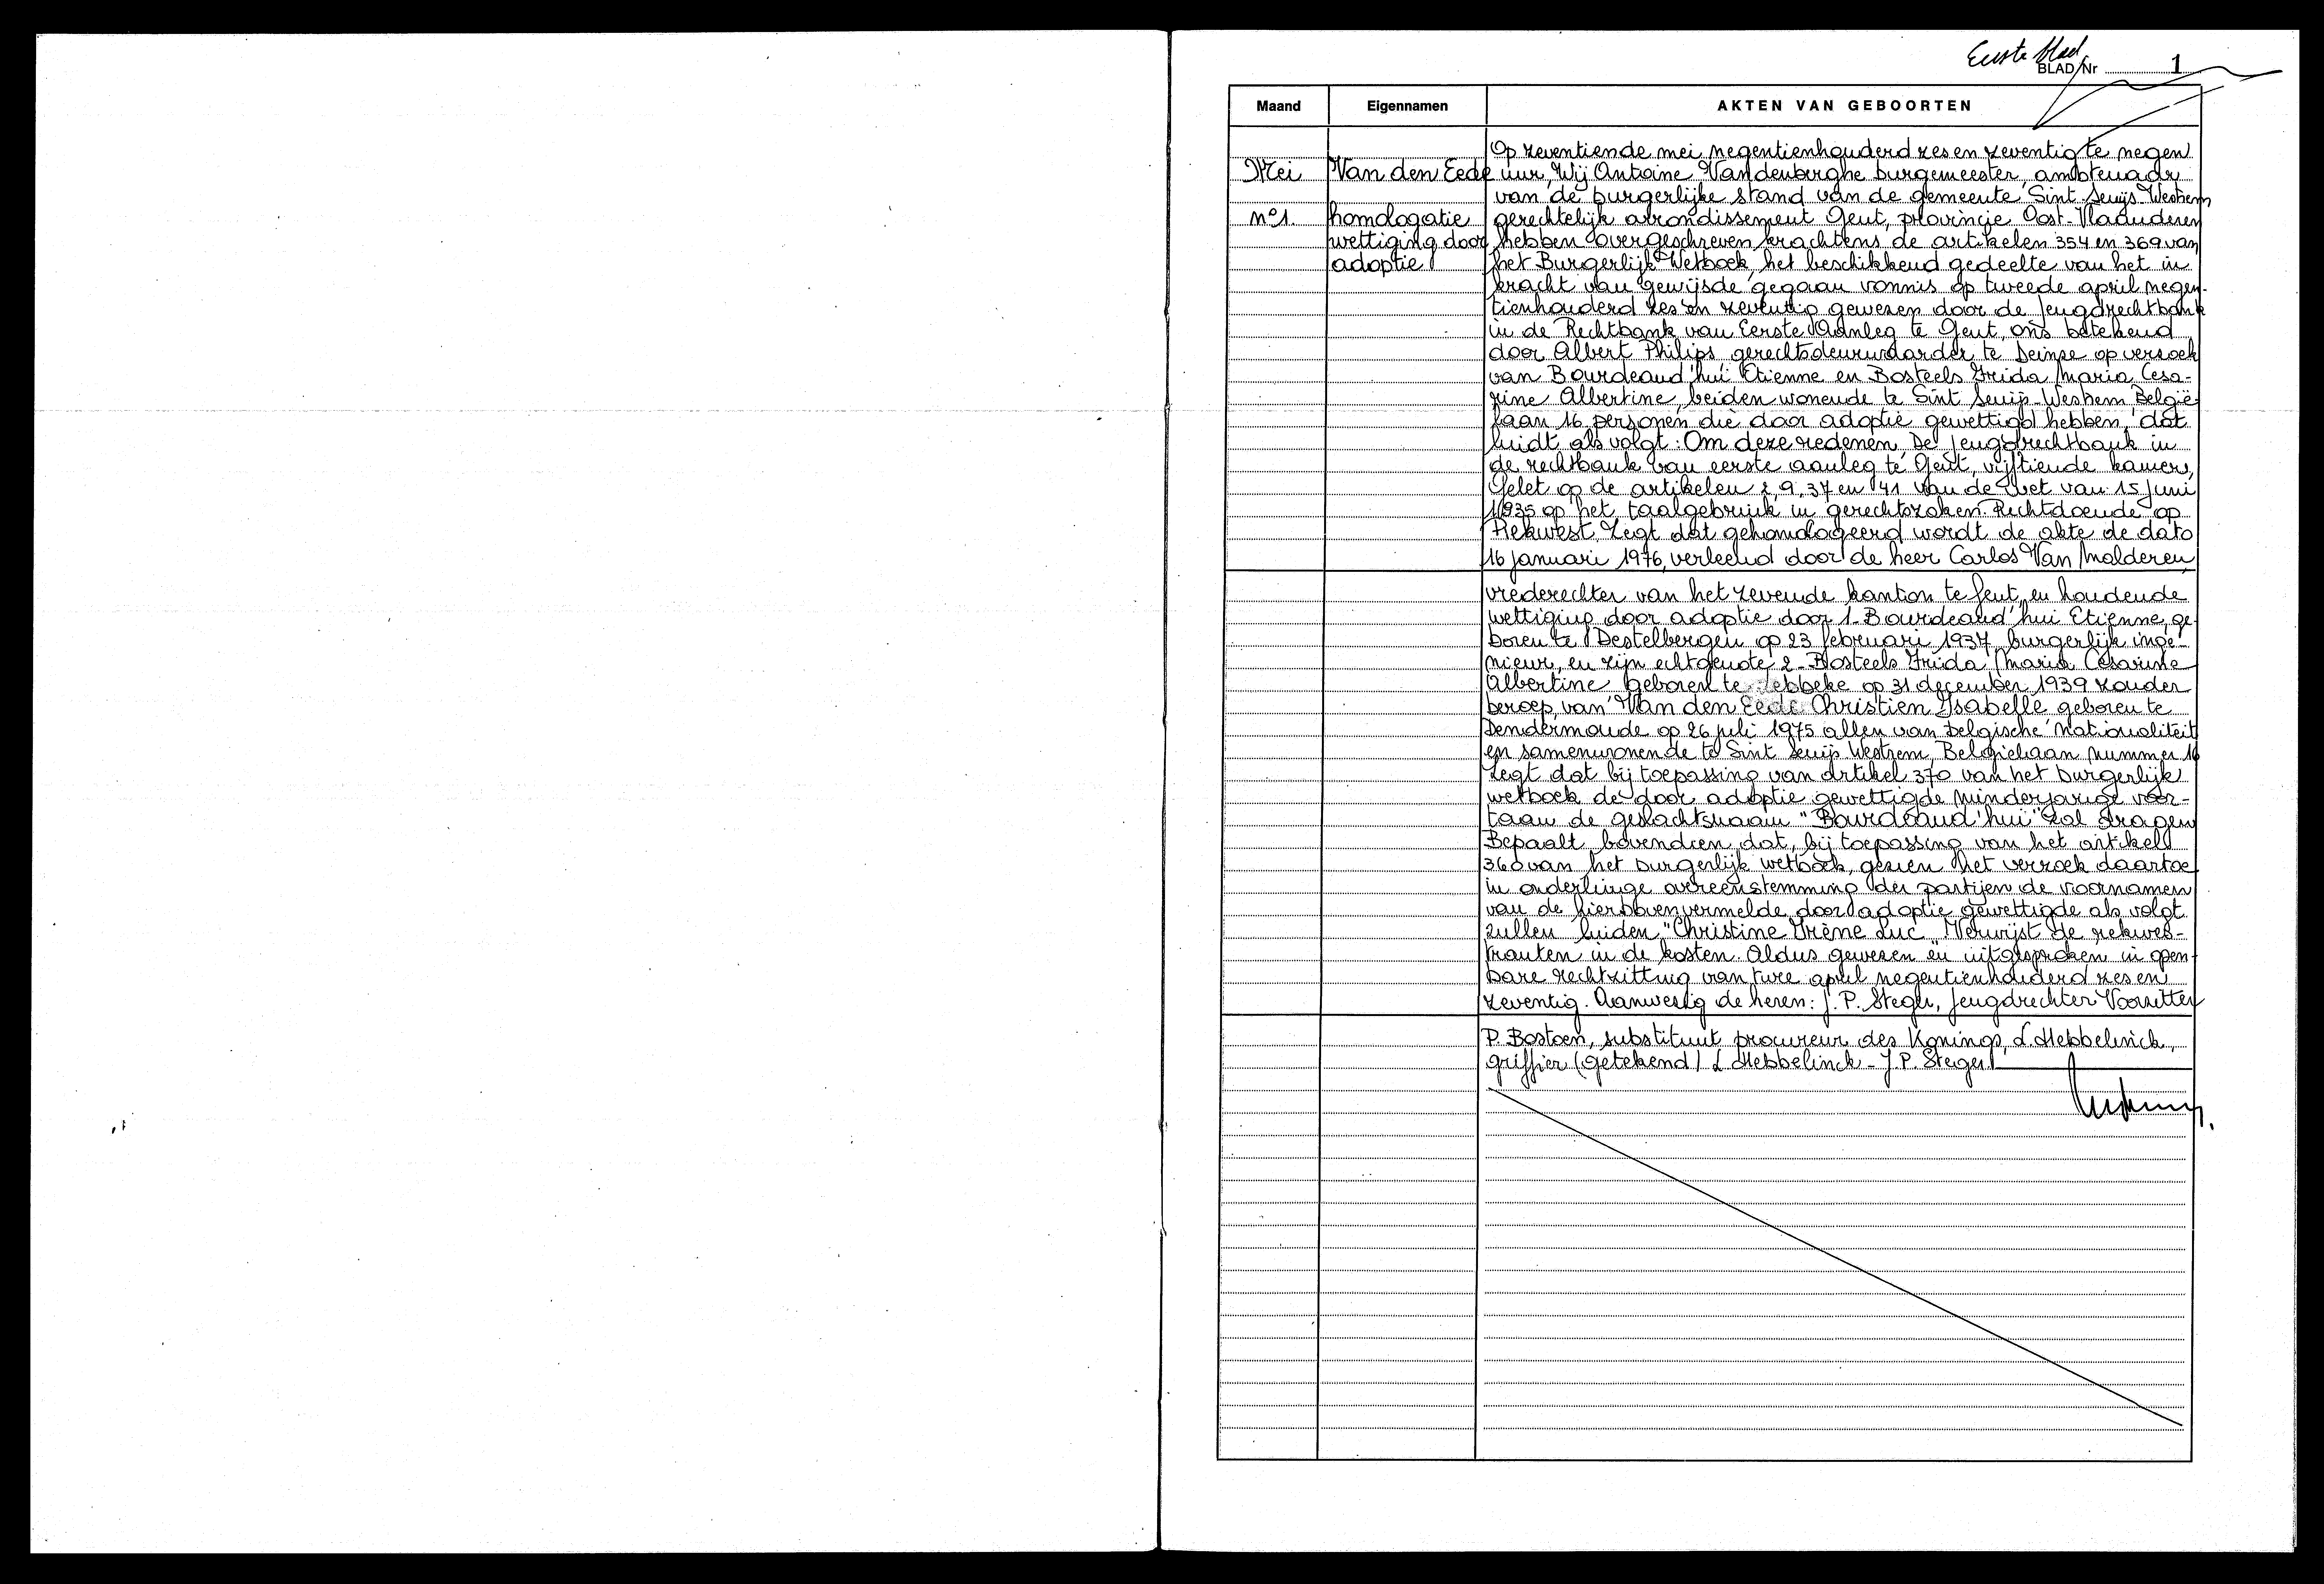 Eerste blad
BLAD Nr 1
Maand Eigennamen AKTEN VAN GEBOORTEN
Mei
n°1.
Van den Eede
homologatie
wettiging door
adoptie
Op zeventiende mei negentienhonderd zes en zeventig te negen
uur, Wij Antoine Vandenberghe burgemeester, ambtenaar
van de burgerlijke stand van de gemeente Sint-Denijs-Westrem
gerechtelijk arrondissement Gent, provincie Oost-Vlaanderen
hebben overgeschreven krachtens de artikelen 354 en 369 van
het Burgerlijk Wetboek, het beschikkend gedeelte van het in
kracht van gewijsde gegaan vonnis op tweede april negen-
tienhonderd zes en zeventig gewezen door de Jeugdrechtbank
in de Rechtbank van Eerste Aanleg te Gent, ons betekend
door Albert Philips gerechtsdeurwaarder te Deinze op verzoek
van Bourdeaud'hui Etienne en Bosteels Frida Maria Cesa-
rine Albertine, beiden wonende te Sint Denijs-Westrem België-
laan 16 personen die door adoptie gewettigd hebben, dat
luidt als volgt: Om deze redenen, De Jeugdrechtbank in
de rechtbank van eerste aanleg te Gent, vijftiende kamer,
Gelet op de artikelen 2, 9, 37 en 41 van de wet van 15 juni
1935 op het taalgebruik in gerechtszaken. Rechtdoende op
Rekwest, Zegt dat gehomologeerd wordt de akte de dato
16 januari 1976, verleend door de heer Carlos Van Malderen,
vrederechter van het zevende kanton te Gent, en houdende
wettiging door adoptie door 1- Bourdeaud'hui Etienne, ge-
boren te Destelbergen op 23 februari 1937, burgerlijk inge-
nieur, en zijn echtgenote 2- Bosteels Frida Maria Cesarine
Albertine geboren te Lebbeke op 31 december 1939 zonder
beroep, van Van den Eede Christien Isabelle geboren te
Dendermonde op 26 juli 1975 allen van Belgische nationaliteit
en samenwonende te Sint Denijs Westrem, Belgiëlaan nummer 16
Zegt dat bij toepassing van artikel 370 van het burgerlijk
wetboek de door adoptie gewettigde minderjarige voor-
taan de geslachtsnaam "Bourdeaud'hui" zal dragen
Bepaalt bovendien dat, bij toepassing van het artikel
360 van het burgerlijk wetboek, gezien het verzoek daartoe
in onderlinge overeenstemming der partijen de voornamen
van de hierbovenvermelde door adoptie gewettigde als volgt
zullen luiden "Christine Irène Luc" Verwijst de rekwes-
tranten in de kosten. Aldus gewezen en uitgesproken in open-
bare rechtzitting van twee april negentienhonderd zes en
zeventig. Aanwezig de heren: J. P. Steger, Jeugdrechter Voorzitter
P. Bostoen, substituut procureur des Konings, L. Hebbelinck,
griffier (getekend) L Hebbelinck - J.P. Steger